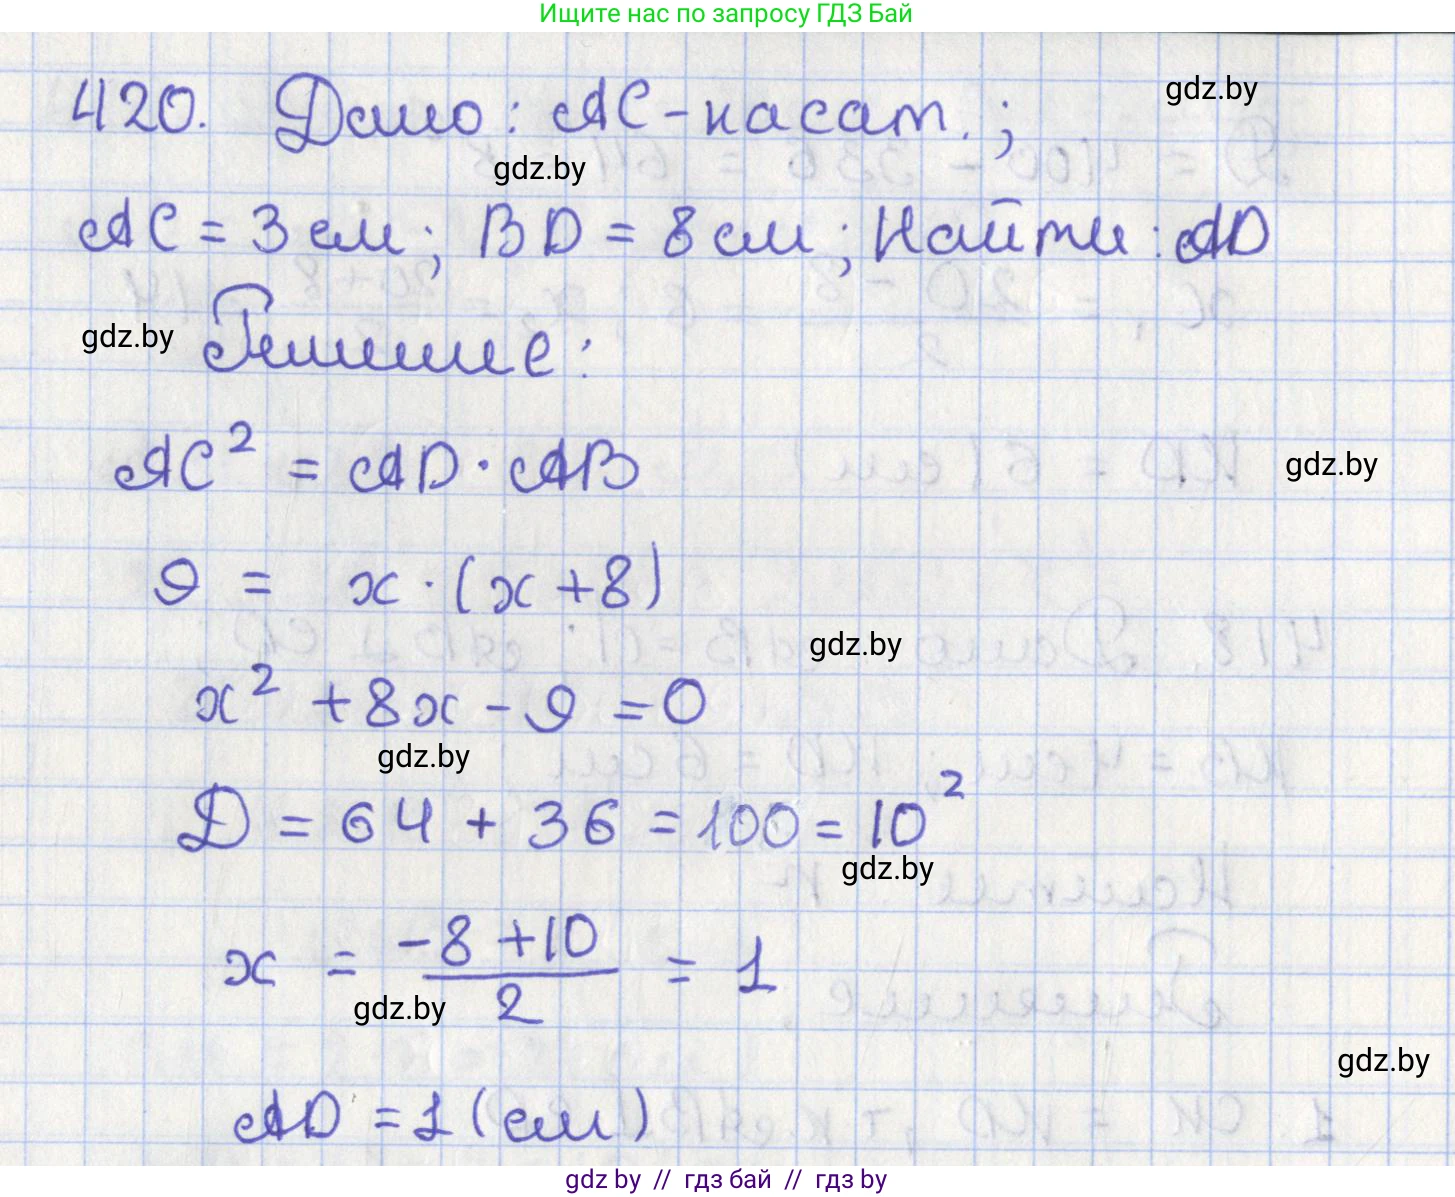 Ищите нас по запросу ГДЗ Бай
gdz.by
420. Дано: AC - касат.;
gdz.by
AC = 3 см; BD = 8 см; Найти: AD
gdz.by
Решение:
AC² = AD · AB
gdz.by
9 = x · (x + 8)
gdz.by
x² + 8x - 9 = 0
gdz.by
Д = 64 + 36 = 100 = 10²
gdz.by
x = (-8 + 10) / 2 = 1
gdz.by
gdz.by
AD = 1 (см)
gdz.by // гдз бай // гдз.by